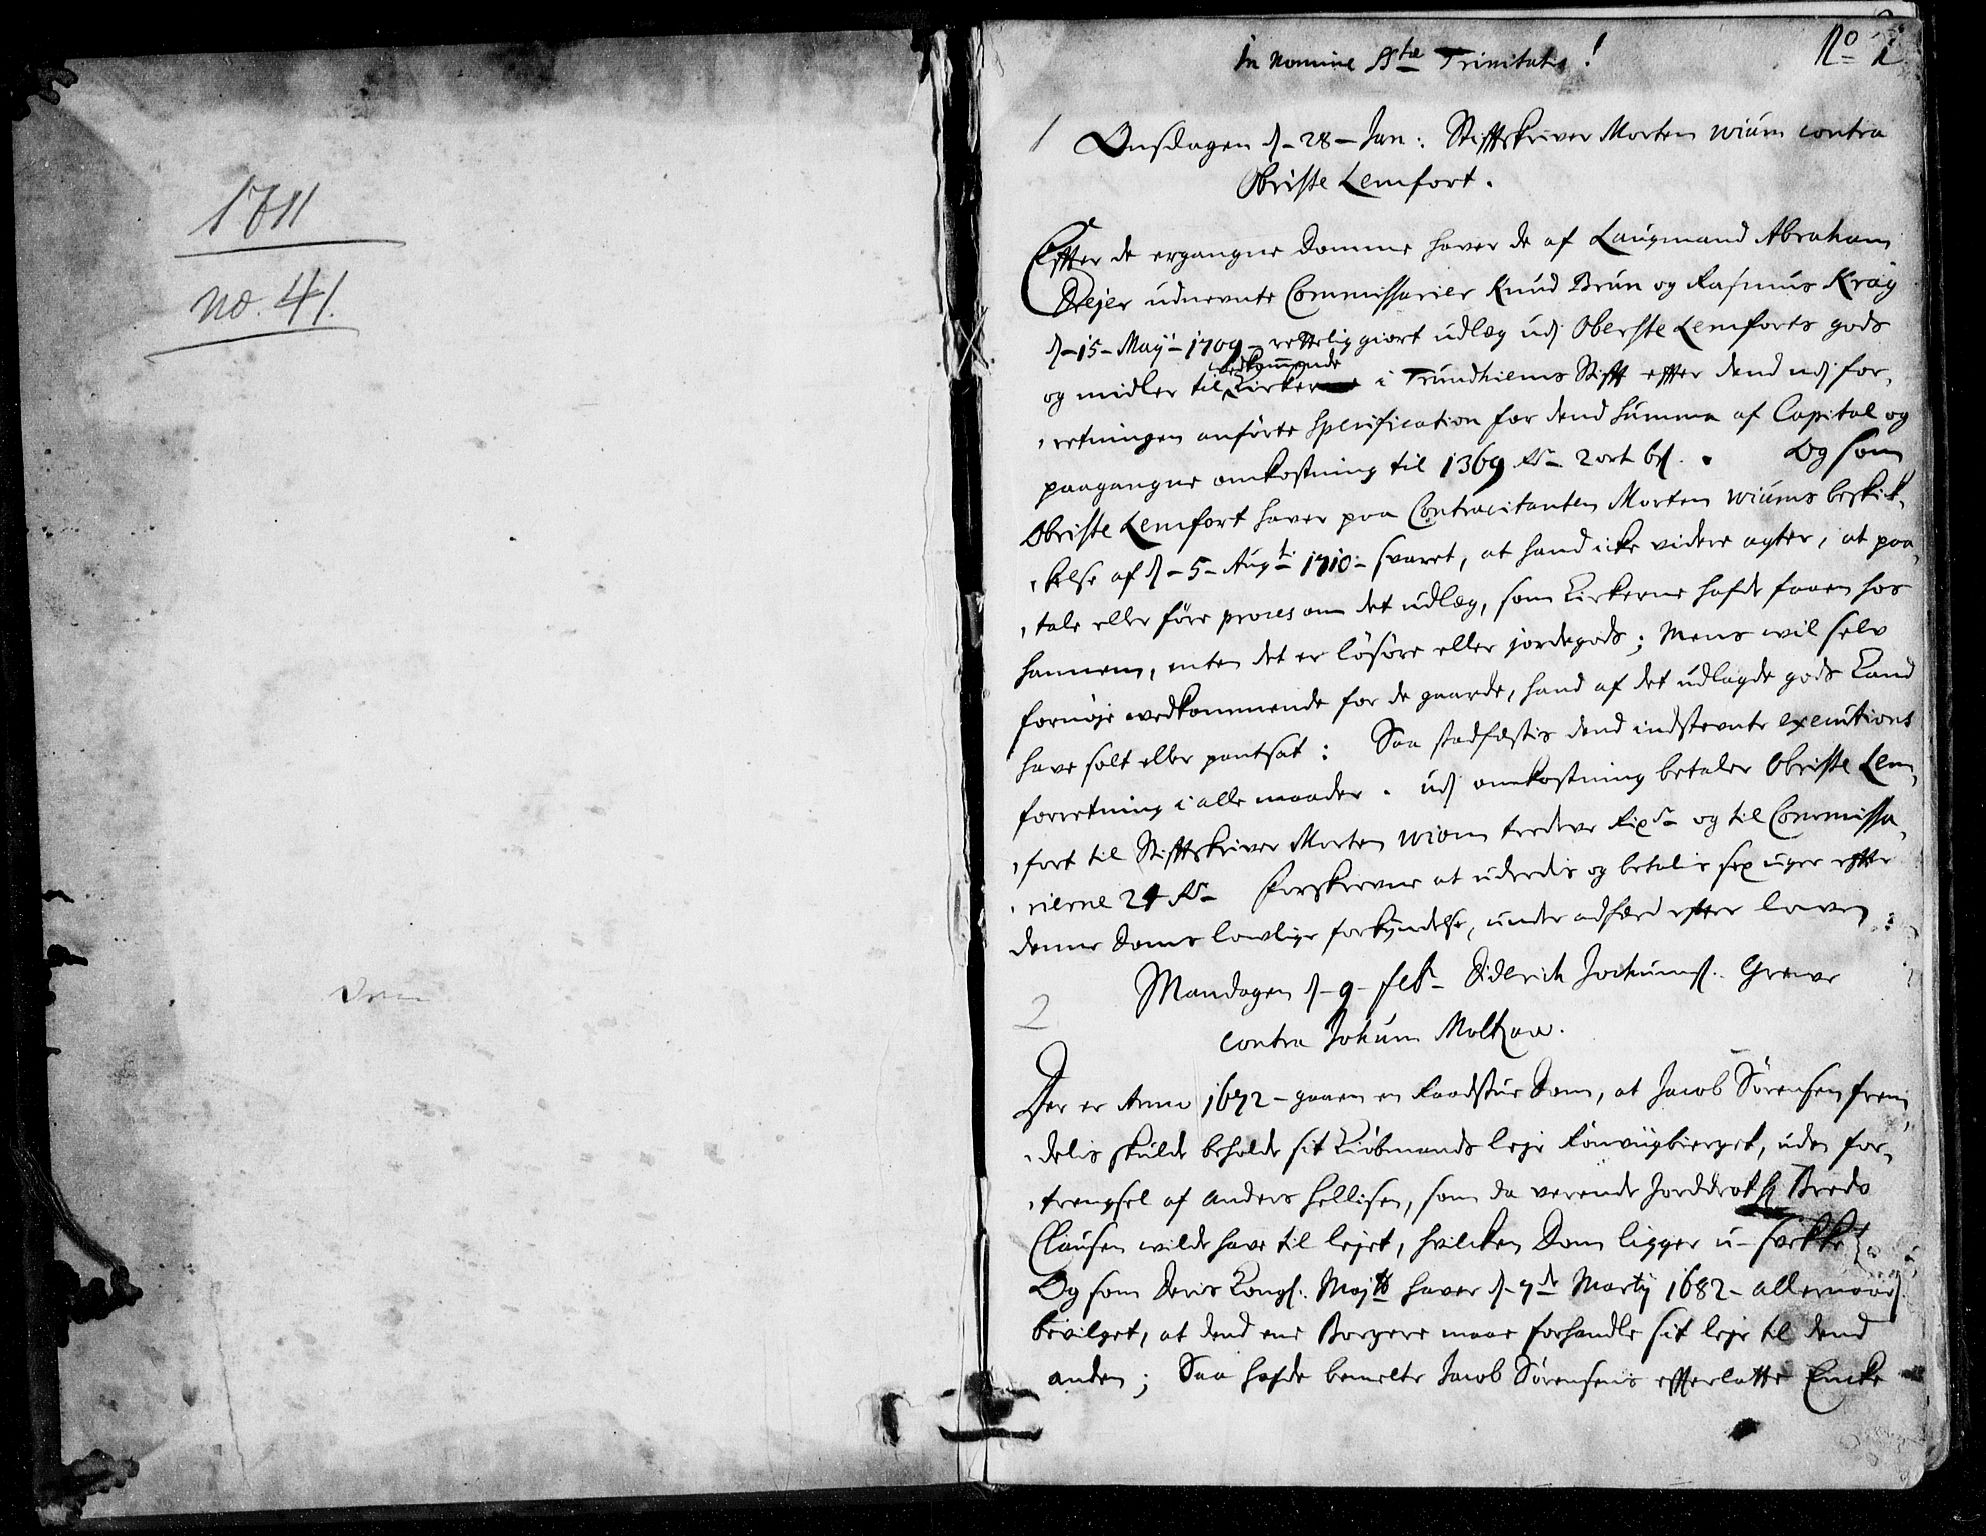 1711
no. 41.
No 1
In Nomine Sstæ Trinitatis!
1 Onsdagen d. 28 Jan: Stifftskriver Morten Wium contra
Obriste Lemfort.
Effter de ergangne Domme haver de af Laugmand Abraham
Drejer udnevnte Commissarier Knud Brun og Rasmus Krag
d. 15 Maÿ 1709 retteligen giort udlæg udj Oberste Lemforts gods
og midler til vedkommende Kirker i Trundhiems Stifft effter dend udj for-
retningen anførte Specification for dend Summa af Capital og
paagangne omkostning til 1369 Rdr 2 ort 6 s. Og som
Obriste Lemfort haver paa Contracitanten Morten Wiums beskik-
kelse af d. 5 Augti 1710 svaret, at hand icke videre agter, at paa-
tale eller føre proces om det udlæg, som Kirkerne hafde faaen hos
hannem, enten det er løsøre eller jordegods; Mens wil selv
fornøje wedkommende for de gaarde, hand af det udlagde gods kand
have solt eller pantsat: Saa stadfæstis dend indstevnte executions
forretning i alle maader. udj omkostning betaler Obriste Lem-
fort til Stifftskriver Morten Wium tredive Rixdr og til Commissa-
rierne 24 Rdr forskrevne at uderdis og betalis sex uger effter
denne Doms lovlige forkyndelse, under adfærd effter loven:
2 Mandagen d. 9 Febr Diderich Jochumss. Greve
contra Johum Moltzau.
Der er Anno 1672 gaaen en Raadstue Dom, at Jacob Sørensen frem-
delis skulde beholde sit Kiøbmands leje Rønvigbierget, uden for-
trengsel af Anders Hellisen, som da verende Jorddrot Hr Bredo
Clausen wilde have til lejet, hvilcken Dom ligger u-svekket
Og som Deris Kongl. Majts haver d. 7de Martij 1682 allernaad.
bevilget, at dend ene Borgere maae forhandle sit leje til dend
anden; Saa hafde bemelte Jacob Sørensens effterlatte Encke